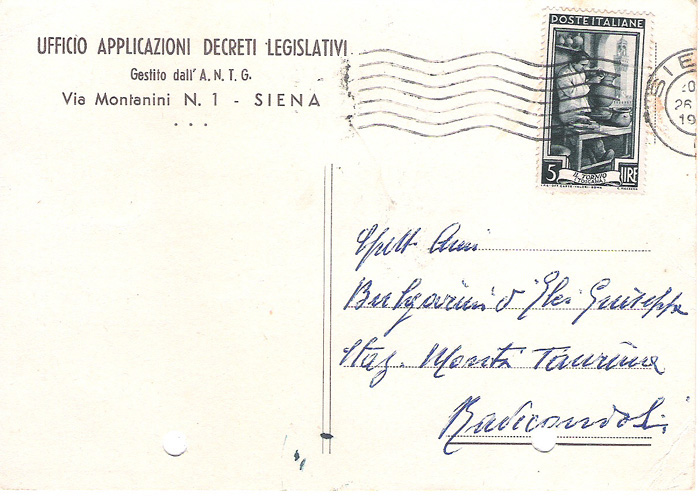 UFFICIO APPLICAZIONI DECRETI LEGISLATIVI
Gestito dall' A. N. T. G.
Via Montanini N. 1 - SIENA
POSTE ITALIANE
5 LIRE
IL TORNIO
(TOSCANA)
SIE
26
19
Spett Am
Bulgarini d'Elci Giuseppe
Staz. Montà Taurina
Radicondoli